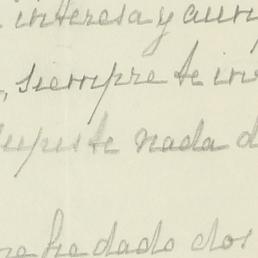 interesa y aun
, siempre te in
upiste nada d
he dado dos